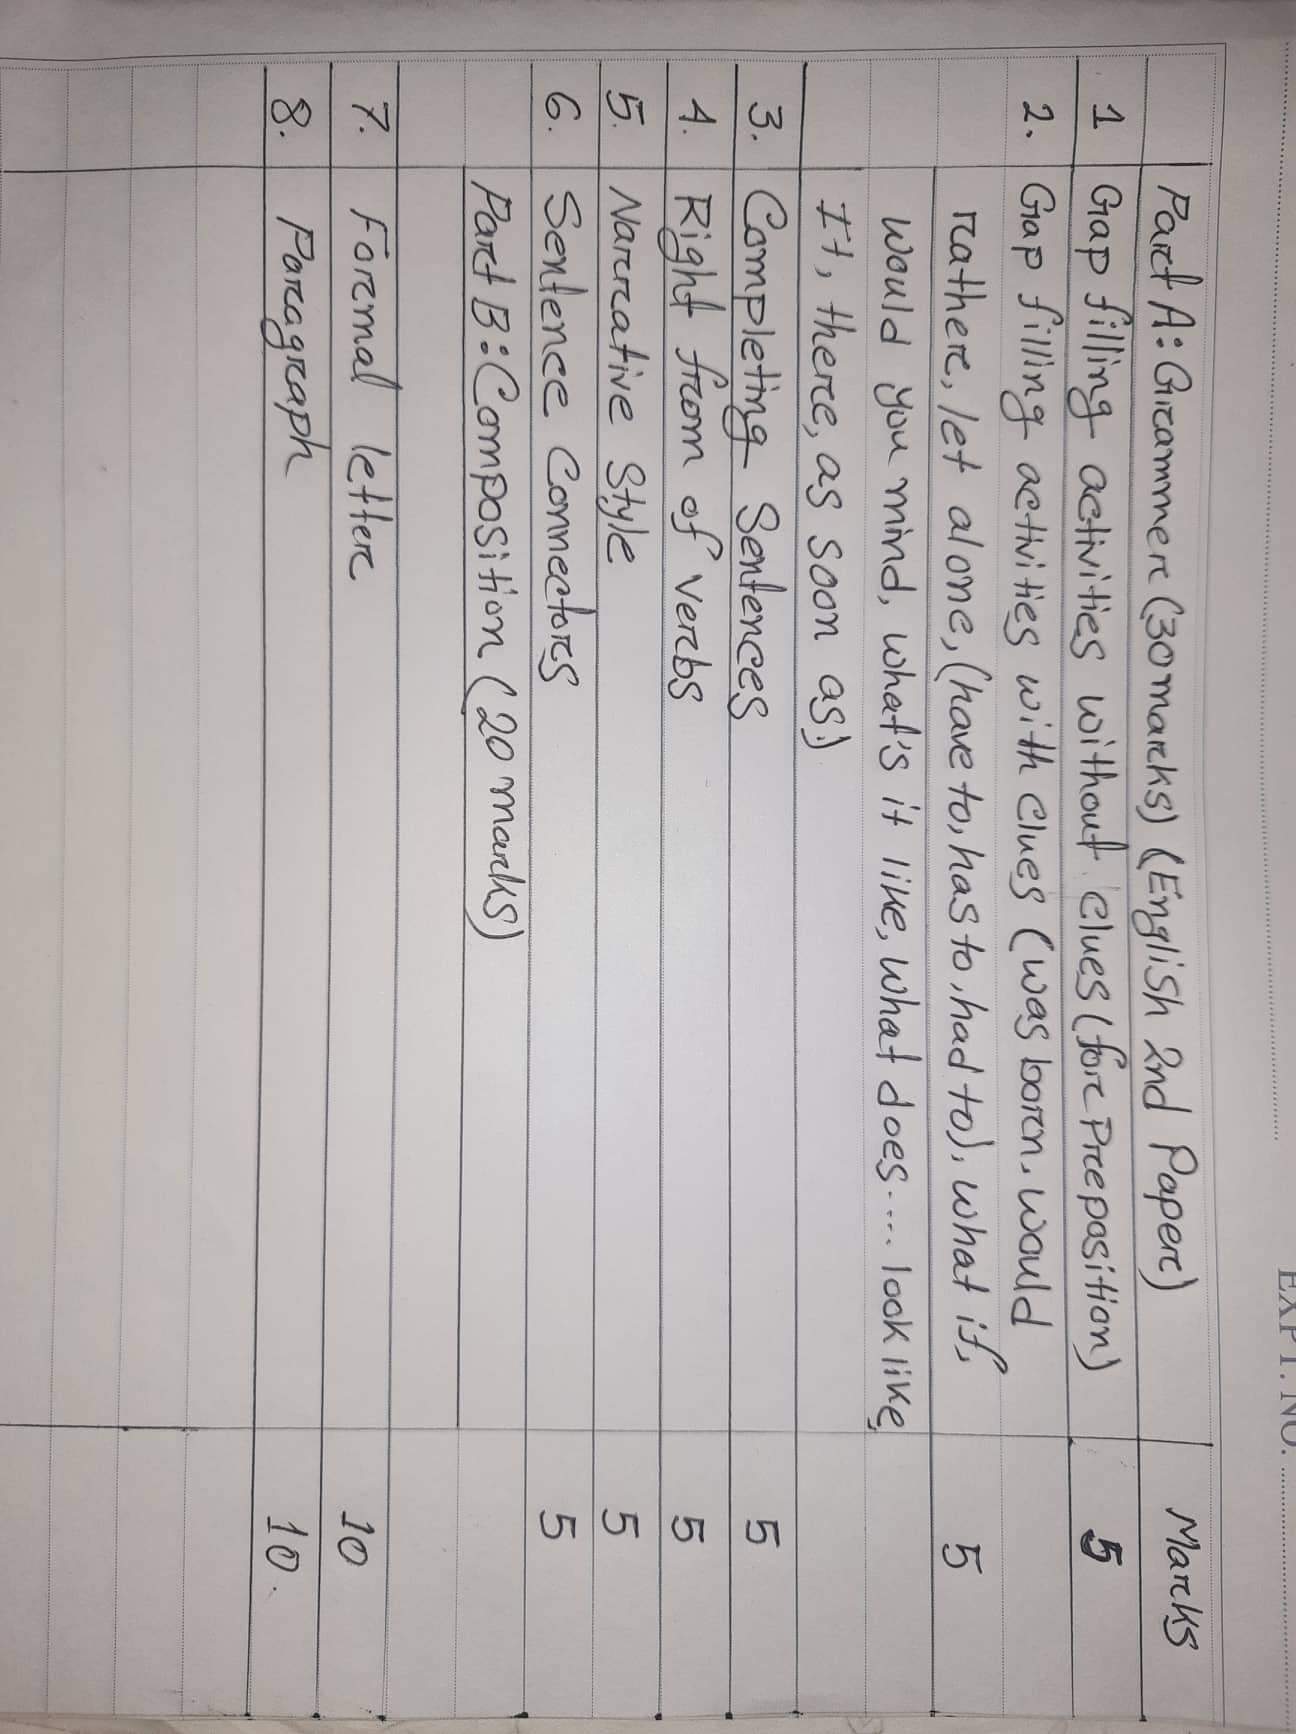 EXPT. NO. ....................
Part A: Grammer (30 marks) (English 2nd Paper) Marks
1 Gap filling activities without clues (for Preposition) 5
2. Gap filling activities with clues (was born, would
rather, let alone, (have to, has to, had to), what if, 5
would you mind, what's it like, what does.... look like,
It, there, as soon as)
3. Completing Sentences 5
4. Right from of verbs 5
5. Narrative Style 5
6. Sentence Connectors 5
Part B: Composition (20 marks)
7. Formal letter 10
8. Paragraph 10.